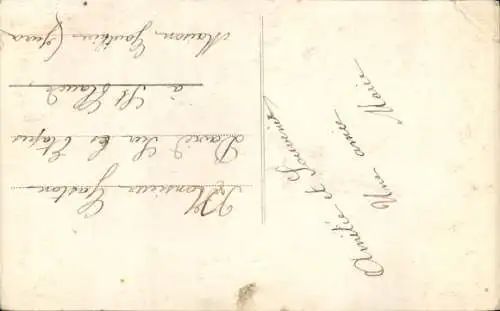 Monsieur Gaston
David Sur les Etapes
à St Claude
Maison Gauthier (Jura
Amitié et Souvenir
Une amie
Marie